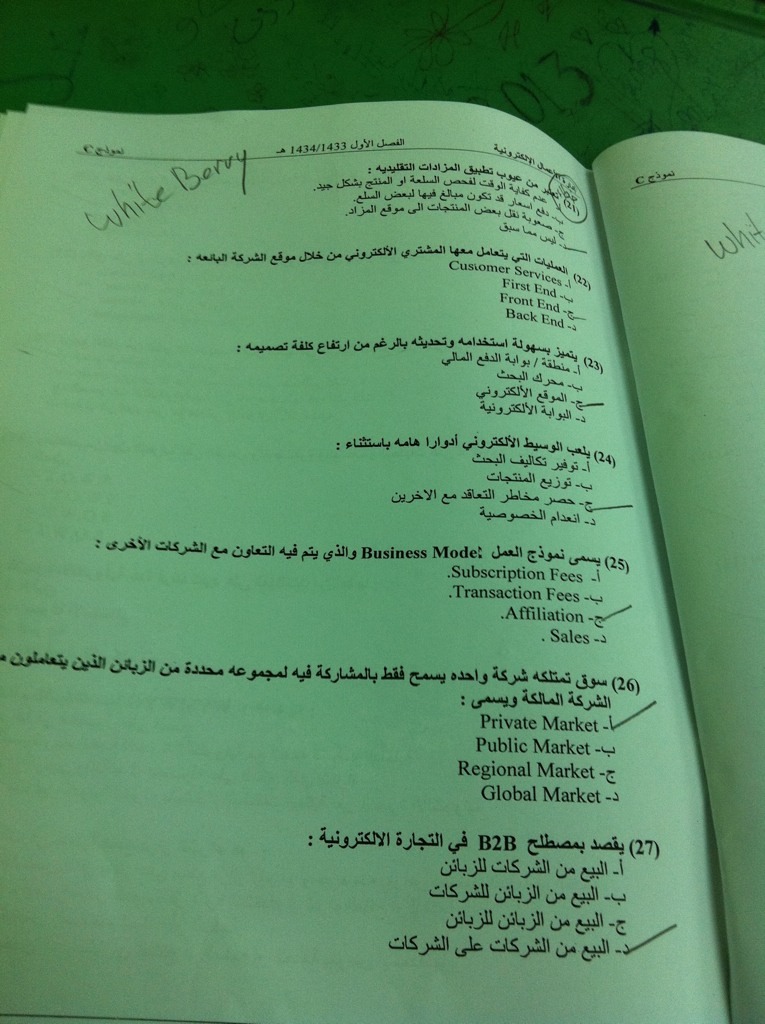 نموذج C
الفصل الأول 1434/1433 هـ
الالكترونية
White Berry
(21) من عيوب تطبيق المزادات التقليديه :
أ- عدم كفاية الوقت لفحص السلعة او المنتج بشكل جيد.
ب- دفع اسعار قد تكون مبالغ فيها لبعض السلع.
ج- صعوبة نقل بعض المنتجات الى موقع المزاد.
د- ليس مما سبق
(22) العمليات التي يتعامل معها المشتري الألكتروني من خلال موقع الشركة البائعه :
أ- Customer Services
ب- First End
ج- Front End
د- Back End
(23) يتميز بسهولة استخدامه وتحديثه بالرغم من ارتفاع كلفة تصميمه :
أ- منطقة / بوابة الدفع المالي
ب- محرك البحث
ج- الموقع الألكتروني
د- البوابة الألكترونية
(24) يلعب الوسيط الألكتروني أدوارا هامه باستثناء :
أ- توفير تكاليف البحث
ب- توزيع المنتجات
ج- حصر مخاطر التعاقد مع الاخرين
د- انعدام الخصوصية
(25) يسمى نموذج العمل Business Model والذي يتم فيه التعاون مع الشركات الأخرى :
أ- Subscription Fees.
ب- Transaction Fees.
ج- Affiliation.
د- Sales .
(26) سوق تمتلكه شركة واحده يسمح فقط بالمشاركة فيه لمجموعه محددة من الزبائن الذين يتعاملون
الشركة المالكة ويسمى :
أ- Private Market
ب- Public Market
ج- Regional Market
د- Global Market
(27) يقصد بمصطلح B2B في التجارة الالكترونية :
أ- البيع من الشركات للزبائن
ب- البيع من الزبائن للشركات
ج- البيع من الزبائن للزبائن
د- البيع من الشركات على الشركات
نموذج C
Whit
2013